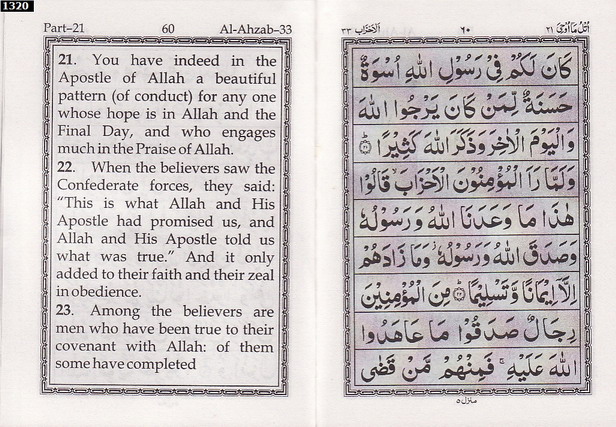 1320
Part–21 60 Al-Ahzab–33
21. You have indeed in the
Apostle of Allah a beautiful
pattern (of conduct) for any one
whose hope is in Allah and the
Final Day, and who engages
much in the Praise of Allah.
22. When the believers saw the
Confederate forces, they said:
“This is what Allah and His
Apostle had promised us, and
Allah and His Apostle told us
what was true.” And it only
added to their faith and their zeal
in obedience.
23. Among the believers are
men who have been true to their
covenant with Allah: of them
some have completed
اُتْلُ مَآ اُوْحِیَ ۲۱ ۶۰ اَلْاَحْزَاب ۳۳
كَانَ لَكُمْ فِیْ رَسُوْلِ اللّٰهِ اُسْوَةٌ
حَسَنَةٌ لِّمَنْ كَانَ یَرْجُوا اللّٰهَ
وَالْیَوْمَ الْاٰخِرَ وَذَكَرَ اللّٰهَ كَثِیْرًا ۝۲۱
وَلَمَّا رَاَ الْمُؤْمِنُوْنَ الْاَحْزَابَ ۙ قَالُوْا
هٰذَا مَا وَعَدَنَا اللّٰهُ وَرَسُوْلُهٗ
وَصَدَقَ اللّٰهُ وَرَسُوْلُهٗ ؗ وَمَا زَادَهُمْ
اِلَّاۤ اِیْمَانًا وَّتَسْلِیْمًا ۝۲۲ مِنَ الْمُؤْمِنِیْنَ
رِجَالٌ صَدَقُوْا مَا عَاهَدُوا
اللّٰهَ عَلَیْهِ ۚ فَمِنْهُمْ مَّنْ قَضٰی
منزل ۵